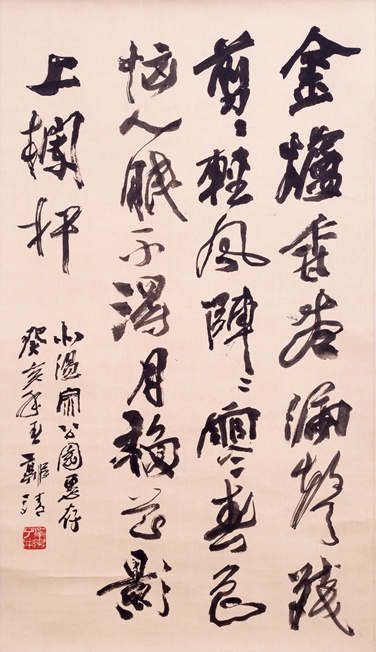 金爐香盡漏聲殘
剪〻輕風陣〻寒春色
惱人眠不得月移花影
上欄杆
小溫泉公園惠存
癸亥年春